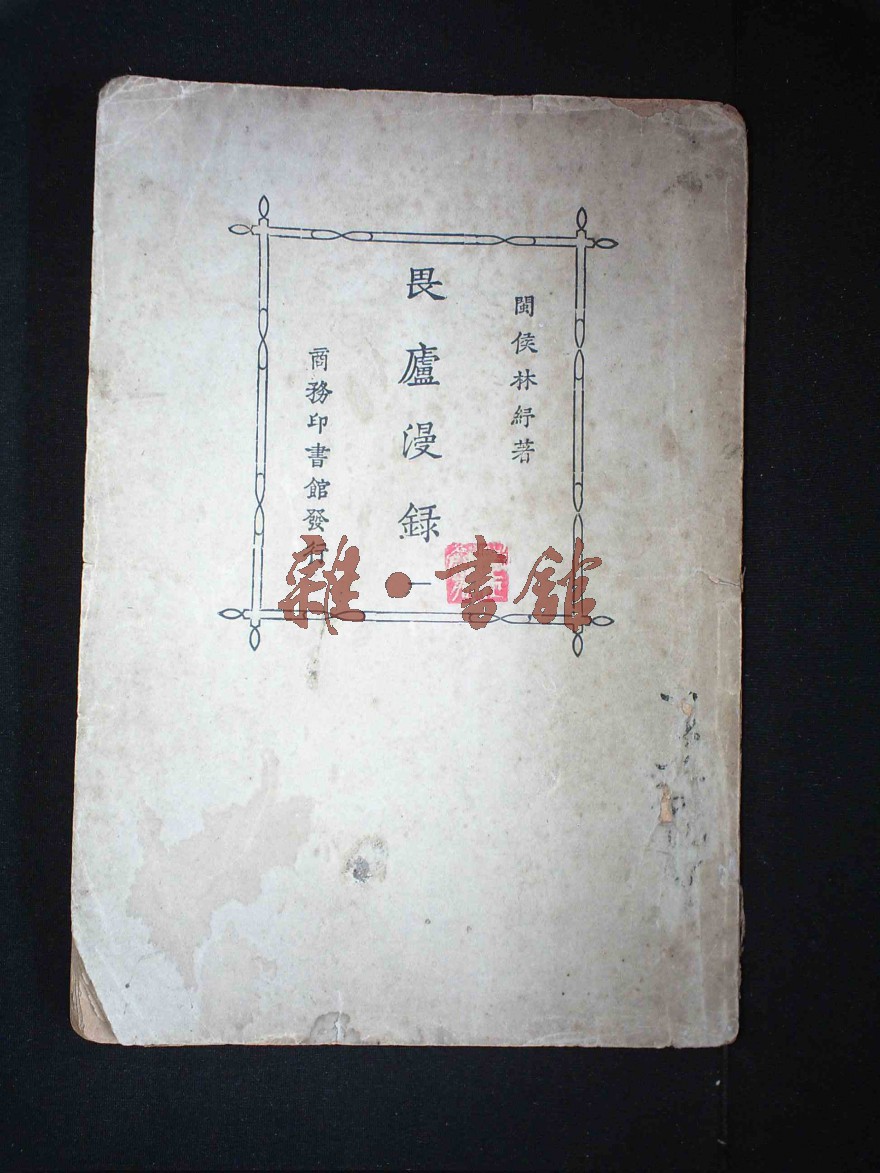 閩侯林紓著
畏廬漫録
一
商務印書館發行
雜·書館